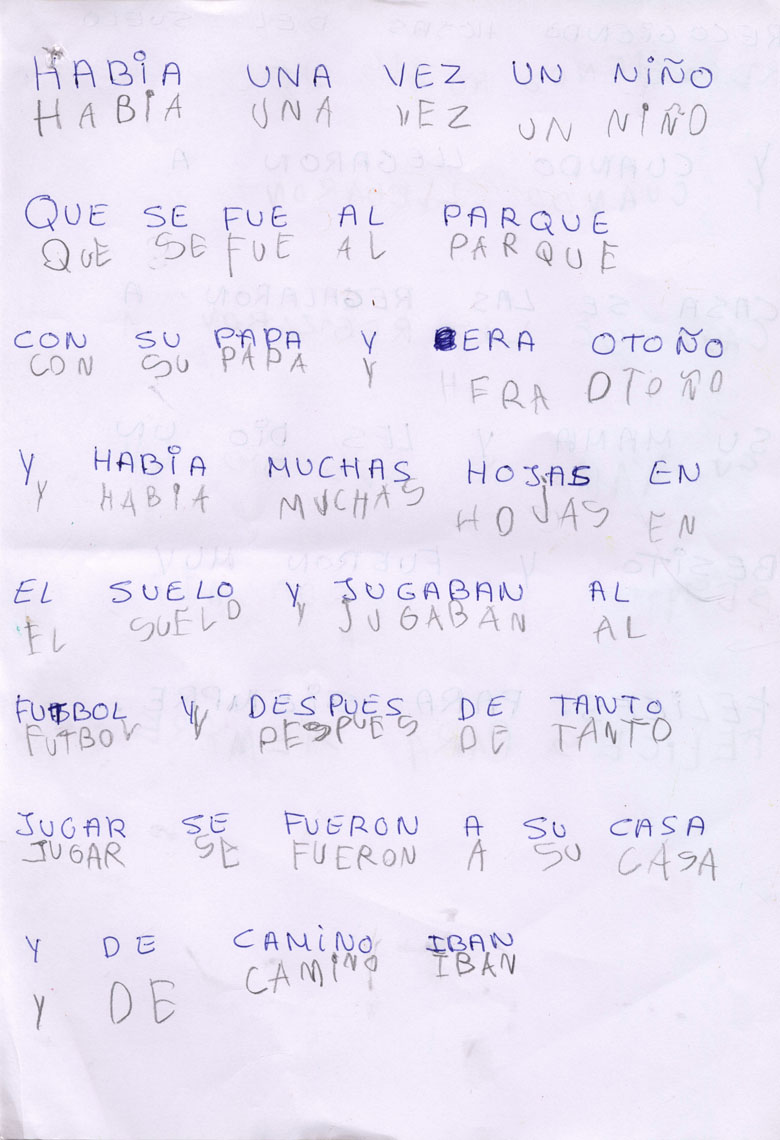 HABIA UNA VEZ UN NIÑO
HABIA UNA VEZ UN NIÑO
QUE SE FUE AL PARQUE
QUE SE FUE AL PARQUE
CON SU PAPA Y ERA OTOÑO
CON SU PAPA Y ERA OTOÑO
Y HABIA MUCHAS HOJAS EN
Y HABIA MUCHAS HOJAS EN
EL SUELO Y JUGABAN AL
EL SUELO Y JUGABAN AL
FUTBOL Y DESPUES DE TANTO
FUTBOL Y DESPUES DE TANTO
JUGAR SE FUERON A SU CASA
JUGAR SE FUERON A SU CASA
Y DE CAMINO IBAN
Y DE CAMINO IBAN